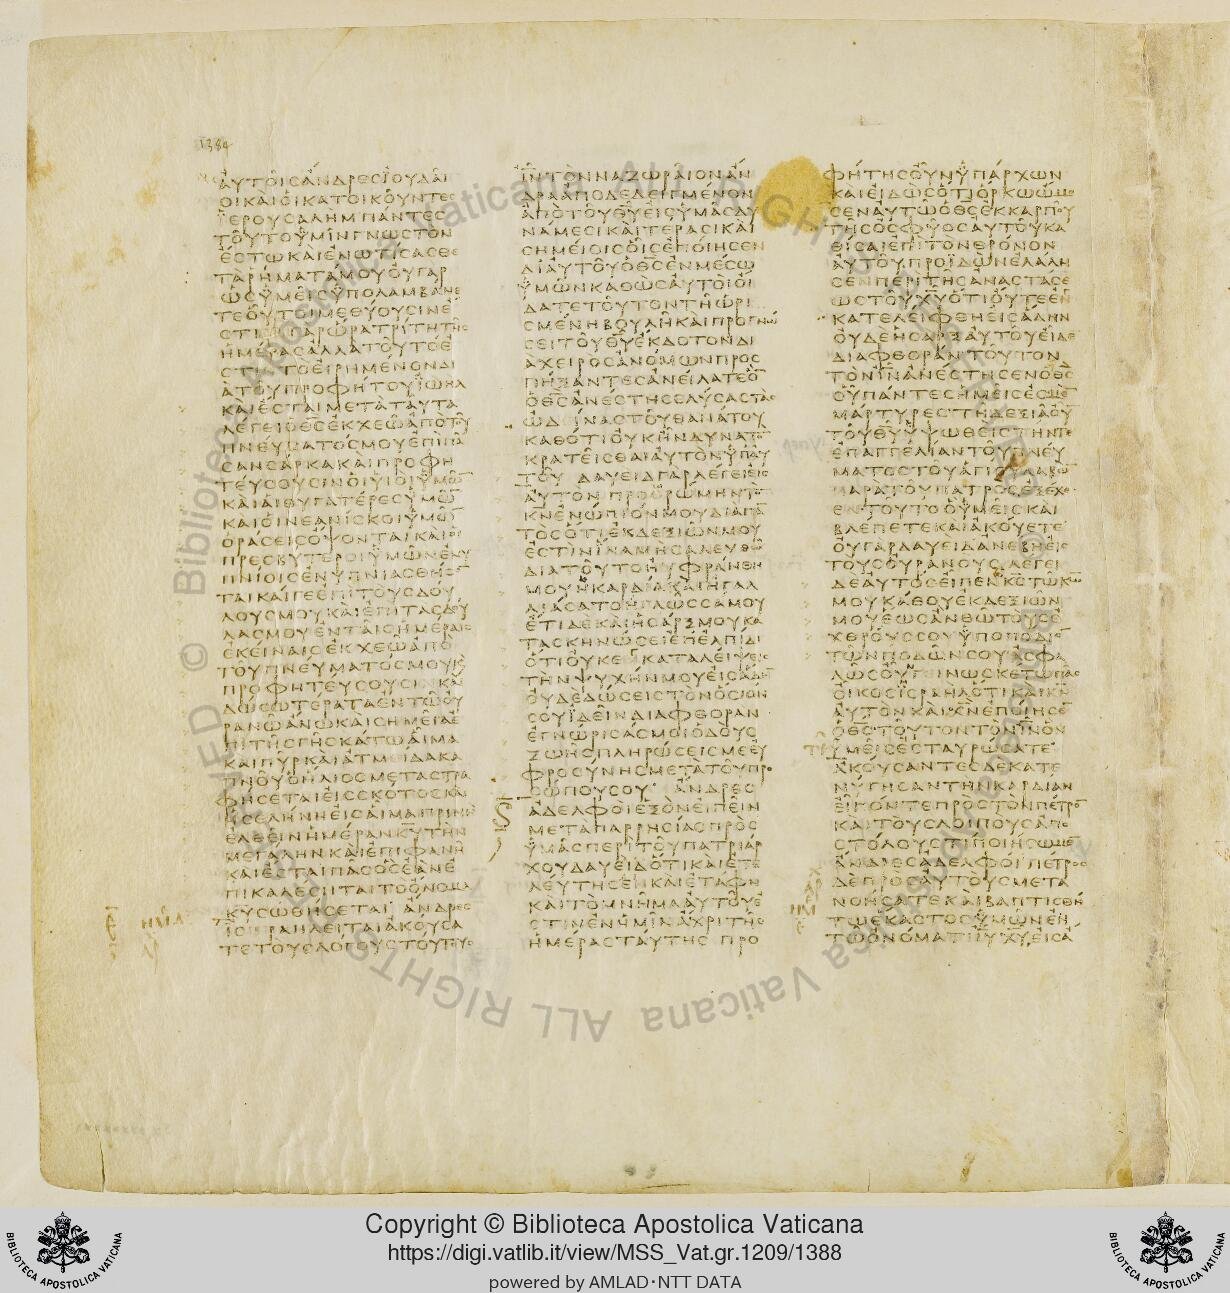 1384
ΑΥΤΟΙΣ ΑΝΔΡΕΣ ΙΟΥΔΑΙ
ΟΙ ΚΑΙ ΟΙ ΚΑΤΟΙΚΟΥΝΤΕΣ
ΙΕΡΟΥΣΑΛΗΜ ΠΑΝΤΕΣ
ΤΟΥΤΟ ΥΜΙΝ ΓΝΩΣΤΟΝ
ΕΣΤΩ ΚΑΙ ΕΝΩΤΙΣΑΣΘΕ
ΤΑ ΡΗΜΑΤΑ ΜΟΥ ΟΥ ΓΑΡ
ΩΣ ΥΜΕΙΣ ΥΠΟΛΑΜΒΑΝΕ
ΤΕ ΟΥΤΟΙ ΜΕΘΥΟΥΣΙΝ Ε
ΣΤΙΝ ΓΑΡ ΩΡΑ ΤΡΙΤΗ ΤΗΣ
ΗΜΕΡΑΣ ΑΛΛΑ ΤΟΥΤΟ Ε
ΣΤΙΝ ΤΟ ΕΙΡΗΜΕΝΟΝ ΔΙ
Α ΤΟΥ ΠΡΟΦΗΤΟΥ ΙΩΗΛ
ΚΑΙ ΕΣΤΑΙ ΜΕΤΑ ΤΑΥΤΑ
ΛΕΓΕΙ Ο ΘΣ ΕΚΧΕΩ ΑΠΟ ΤΟΥ
ΠΝΕΥΜΑΤΟΣ ΜΟΥ ΕΠΙ ΠΑ
ΣΑΝ ΣΑΡΚΑ ΚΑΙ ΠΡΟΦΗ
ΤΕΥΣΟΥΣΙΝ ΟΙ ΥΙΟΙ ΥΜΩΝ
ΚΑΙ ΑΙ ΘΥΓΑΤΕΡΕΣ ΥΜΩΝ
ΚΑΙ ΟΙ ΝΕΑΝΙΣΚΟΙ ΥΜΩΝ
ΟΡΑΣΕΙΣ ΟΨΟΝΤΑΙ ΚΑΙ ΟΙ
ΠΡΕΣΒΥΤΕΡΟΙ ΥΜΩΝ ΕΝΥ
ΠΝΙΟΙΣ ΕΝΥΠΝΙΑΣΘΗΣΟΝ
ΤΑΙ ΚΑΙ ΓΕ ΕΠΙ ΤΟΥΣ ΔΟΥ
ΛΟΥΣ ΜΟΥ ΚΑΙ ΕΠΙ ΤΑΣ ΔΟΥ
ΛΑΣ ΜΟΥ ΕΝ ΤΑΙΣ ΗΜΕΡΑΙΣ
ΕΚΕΙΝΑΙΣ ΕΚΧΕΩ ΑΠΟ
ΤΟΥ ΠΝΕΥΜΑΤΟΣ ΜΟΥ ΚΑΙ
ΠΡΟΦΗΤΕΥΣΟΥΣΙΝ ΚΑΙ
ΔΩΣΩ ΤΕΡΑΤΑ ΕΝ ΤΩ ΟΥ
ΡΑΝΩ ΑΝΩ ΚΑΙ ΣΗΜΕΙΑ Ε
ΠΙ ΤΗΣ ΓΗΣ ΚΑΤΩ ΑΙΜΑ
ΚΑΙ ΠΥΡ ΚΑΙ ΑΤΜΕΙΔΑ ΚΑ
ΠΝΟΥ Ο ΗΛΙΟΣ ΜΕΤΑΣΤΡΑ
ΦΗΣΕΤΑΙ ΕΙΣ ΣΚΟΤΟΣ ΚΑΙ
Η ΣΕΛΗΝΗ ΕΙΣ ΑΙΜΑ ΠΡΙΝ Η
ΕΛΘΕΙΝ ΗΜΕΡΑΝ ΚΥ ΤΗΝ
ΜΕΓΑΛΗΝ ΚΑΙ ΕΠΙΦΑΝΗ
ΚΑΙ ΕΣΤΑΙ ΠΑΣ ΟΣ ΕΑΝ Ε
ΠΙΚΑΛΕΣΗΤΑΙ ΤΟ ΟΝΟΜΑ
ΚΥ ΣΩΘΗΣΕΤΑΙ ΑΝΔΡΕΣ
ΙΣΡΑΗΛΕΙΤΑΙ ΑΚΟΥΣΑ
ΤΕ ΤΟΥΣ ΛΟΓΟΥΣ ΤΟΥΤΟΥΣ
ΙΝ ΤΟΝ ΝΑΖΩΡΑΙΟΝ ΑΝ
ΔΡΑ ΑΠΟΔΕΔΕΙΓΜΕΝΟΝ
ΑΠΟ ΤΟΥ ΘΥ ΕΙΣ ΥΜΑΣ ΔΥ
ΝΑΜΕΣΙ ΚΑΙ ΤΕΡΑΣΙ ΚΑΙ
ΣΗΜΕΙΟΙΣ ΟΙΣ ΕΠΟΙΗΣΕΝ
ΔΙ ΑΥΤΟΥ Ο ΘΣ ΕΝ ΜΕΣΩ
ΥΜΩΝ ΚΑΘΩΣ ΑΥΤΟΙ ΟΙ
ΔΑΤΕ ΤΟΥΤΟΝ ΤΗ ΩΡΙ
ΣΜΕΝΗ ΒΟΥΛΗ ΚΑΙ ΠΡΟΓΝΩ
ΣΕΙ ΤΟΥ ΘΥ ΕΚΔΟΤΟΝ ΔΙ
Α ΧΕΙΡΟΣ ΑΝΟΜΩΝ ΠΡΟΣ
ΠΗΞΑΝΤΕΣ ΑΝΕΙΛΑΤΕ ΟΝ
Ο ΘΣ ΑΝΕΣΤΗΣΕ ΛΥΣΑΣ ΤΑΣ
ΩΔΙΝΑΣ ΤΟΥ ΘΑΝΑΤΟΥ
ΚΑΘΟΤΙ ΟΥΚ ΗΝ ΔΥΝΑΤΟΝ
ΚΡΑΤΕΙΣΘΑΙ ΑΥΤΟΝ ΥΠ ΑΥ
ΤΟΥ ΔΑΥΕΙΔ ΓΑΡ ΛΕΓΕΙ ΕΙΣ
ΑΥΤΟΝ ΠΡΟΟΡΩΜΗΝ ΤΟΝ
ΚΝ ΕΝΩΠΙΟΝ ΜΟΥ ΔΙΑ ΠΑΝ
ΤΟΣ ΟΤΙ ΕΚ ΔΕΞΙΩΝ ΜΟΥ
ΕΣΤΙΝ ΙΝΑ ΜΗ ΣΑΛΕΥΘΩ
ΔΙΑ ΤΟΥΤΟ ΗΥΦΡΑΝΘΗ
ΜΟΥ Η ΚΑΡΔΙΑ ΚΑΙ ΗΓΑΛ
ΛΙΑΣΑΤΟ Η ΓΛΩΣΣΑ ΜΟΥ
ΕΤΙ ΔΕ ΚΑΙ Η ΣΑΡΞ ΜΟΥ ΚΑ
ΤΑΣΚΗΝΩΣΕΙ ΕΠ ΕΛΠΙΔΙ
ΟΤΙ ΟΥΚ ΕΝΚΑΤΑΛΕΙΨΕΙΣ
ΤΗΝ ΨΥΧΗΝ ΜΟΥ ΕΙΣ ΑΔΗΝ
ΟΥΔΕ ΔΩΣΕΙΣ ΤΟΝ ΟΣΙΟΝ
ΣΟΥ ΙΔΕΙΝ ΔΙΑΦΘΟΡΑΝ
ΕΓΝΩΡΙΣΑΣ ΜΟΙ ΟΔΟΥΣ
ΖΩΗΣ ΠΛΗΡΩΣΕΙΣ ΜΕ ΕΥ
ΦΡΟΣΥΝΗΣ ΜΕΤΑ ΤΟΥ ΠΡΟ
ΣΩΠΟΥ ΣΟΥ ΑΝΔΡΕΣ
ΑΔΕΛΦΟΙ ΕΞΟΝ ΕΙΠΕΙΝ
ΜΕΤΑ ΠΑΡΡΗΣΙΑΣ ΠΡΟΣ
ΥΜΑΣ ΠΕΡΙ ΤΟΥ ΠΑΤΡΙΑΡ
ΧΟΥ ΔΑΥΕΙΔ ΟΤΙ ΚΑΙ ΕΤΕ
ΛΕΥΤΗΣΕΝ ΚΑΙ ΕΤΑΦΗ
ΚΑΙ ΤΟ ΜΝΗΜΑ ΑΥΤΟΥ Ε
ΣΤΙΝ ΕΝ ΥΜΙΝ ΑΧΡΙ ΤΗΣ
ΗΜΕΡΑΣ ΤΑΥΤΗΣ ΠΡΟ
ΦΗΤΗΣ ΟΥΝ ΥΠΑΡΧΩΝ
ΚΑΙ ΕΙΔΩΣ ΟΤΙ ΟΡΚΩ ΩΜΟ
ΣΕΝ ΑΥΤΩ Ο ΘΣ ΕΚ ΚΑΡΠΟΥ
ΤΗΣ ΟΣΦΥΟΣ ΑΥΤΟΥ ΚΑ
ΘΙΣΑΙ ΕΠΙ ΤΟΝ ΘΡΟΝΟΝ
ΑΥΤΟΥ ΠΡΟΙΔΩΝ ΕΛΑΛΗ
ΣΕΝ ΠΕΡΙ ΤΗΣ ΑΝΑΣΤΑΣΕ
ΩΣ ΤΟΥ ΧΥ ΟΤΙ ΟΥΤΕ ΕΝ
ΚΑΤΕΛΕΙΦΘΗ ΕΙΣ ΑΔΗΝ
ΟΥΔΕ Η ΣΑΡΞ ΑΥΤΟΥ ΕΙΔΕ
ΔΙΑΦΘΟΡΑΝ ΤΟΥΤΟΝ
ΤΟΝ ΙΝ ΑΝΕΣΤΗΣΕΝ Ο ΘΣ
ΟΥ ΠΑΝΤΕΣ ΗΜΕΙΣ ΕΣΜΕΝ
ΜΑΡΤΥΡΕΣ ΤΗ ΔΕΞΙΑ ΟΥΝ
ΤΟΥ ΘΥ ΥΨΩΘΕΙΣ ΤΗΝ ΤΕ
ΕΠΑΓΓΕΛΙΑΝ ΤΟΥ ΠΝΕΥ
ΜΑΤΟΣ ΤΟΥ ΑΓΙΟΥ ΛΑΒΩΝ
ΠΑΡΑ ΤΟΥ ΠΑΤΡΟΣ ΕΞΕΧΕ
ΕΝ ΤΟΥΤΟ Ο ΥΜΕΙΣ ΚΑΙ
ΒΛΕΠΕΤΕ ΚΑΙ ΑΚΟΥΕΤΕ
ΟΥ ΓΑΡ ΔΑΥΕΙΔ ΑΝΕΒΗ ΕΙΣ
ΤΟΥΣ ΟΥΡΑΝΟΥΣ ΛΕΓΕΙ
ΔΕ ΑΥΤΟΣ ΕΙΠΕΝ ΚΣ ΤΩ ΚΩ
ΜΟΥ ΚΑΘΟΥ ΕΚ ΔΕΞΙΩΝ
ΜΟΥ ΕΩΣ ΑΝ ΘΩ ΤΟΥΣ Ε
ΧΘΡΟΥΣ ΣΟΥ ΥΠΟΠΟΔΙΟΝ
ΤΩΝ ΠΟΔΩΝ ΣΟΥ ΑΣΦΑ
ΛΩΣ ΟΥΝ ΓΕΙΝΩΣΚΕΤΩ ΠΑΣ
ΟΙΚΟΣ ΙΣΡΑΗΛ ΟΤΙ ΚΑΙ ΚΝ
ΑΥΤΟΝ ΚΑΙ ΧΝ ΕΠΟΙΗΣΕ
Ο ΘΣ ΤΟΥΤΟΝ ΤΟΝ ΙΝ ΟΝ
ΥΜΕΙΣ ΕΣΤΑΥΡΩΣΑΤΕ
ΑΚΟΥΣΑΝΤΕΣ ΔΕ ΚΑΤΕ
ΝΥΓΗΣΑΝ ΤΗΝ ΚΑΡΔΙΑΝ
ΕΙΠΟΝ ΤΕ ΠΡΟΣ ΤΟΝ ΠΕΤΡΟΝ
ΚΑΙ ΤΟΥΣ ΛΟΙΠΟΥΣ ΑΠΟ
ΣΤΟΛΟΥΣ ΤΙ ΠΟΙΗΣΩΜΕΝ
ΑΝΔΡΕΣ ΑΔΕΛΦΟΙ ΠΕΤΡΟΣ
ΔΕ ΠΡΟΣ ΑΥΤΟΥΣ ΜΕΤΑ
ΝΟΗΣΑΤΕ ΚΑΙ ΒΑΠΤΙΣΘΗ
ΤΩ ΕΚΑΣΤΟΣ ΥΜΩΝ ΕΝ
ΤΩ ΟΝΟΜΑΤΙ ΙΥ ΧΥ ΕΙΣ Α
Copyright © Biblioteca Apostolica Vaticana
https://digi.vatlib.it/view/MSS_Vat.gr.1209/1388
powered by AMLAD·NTT DATA